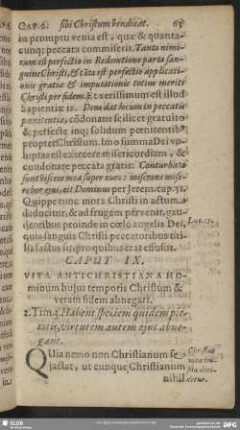 CAP. 8. sibi Christum vendicat. 65
in promptu venia est, quæ & quanta-
cunq; peccata commiseris. Tanta nimi-
rum est perfectio in Redemtione parta san-
guine Christi, & tāta est perfectio applicati-
onis gratiæ & imputationis totius meriti
Christi per fidem. Et verissimum est illud
Sapientiæ 12. Dem dat locum in peccatis
pœnitentiæ, cōdonans scilicet gratuito
& perfecte inq; solidum pœnitentib9
propter Christum. Imo summa Dei vo-
luptas est exercere misericordiam, &
condonare peccata gratis. Conturbata
sunt viscera mea super eum: miserans mise-
rebor ejus, ait Dominus per Jerem. cap. 31.
Quippe tunc mors Christi in actum
deducitur, & ad frugem pervenit, gau-
dentibus proinde in cœlo angelis Dei,
quia sanguis Christi peccatoribus uti-
lis factus sit, pro quibus erat effusus.
CAPUT IX.
VITA ANTICHRISTIANA HO-
minum hujus temporis Christum &
veram fidem abnegari.
2. Tim. 3. Habent speciem quidem pie-
tatis, virtutem autem ejus abne-
gant.
Quia nemo non Christianum se
jactat, ut cunque Christianum
nihil